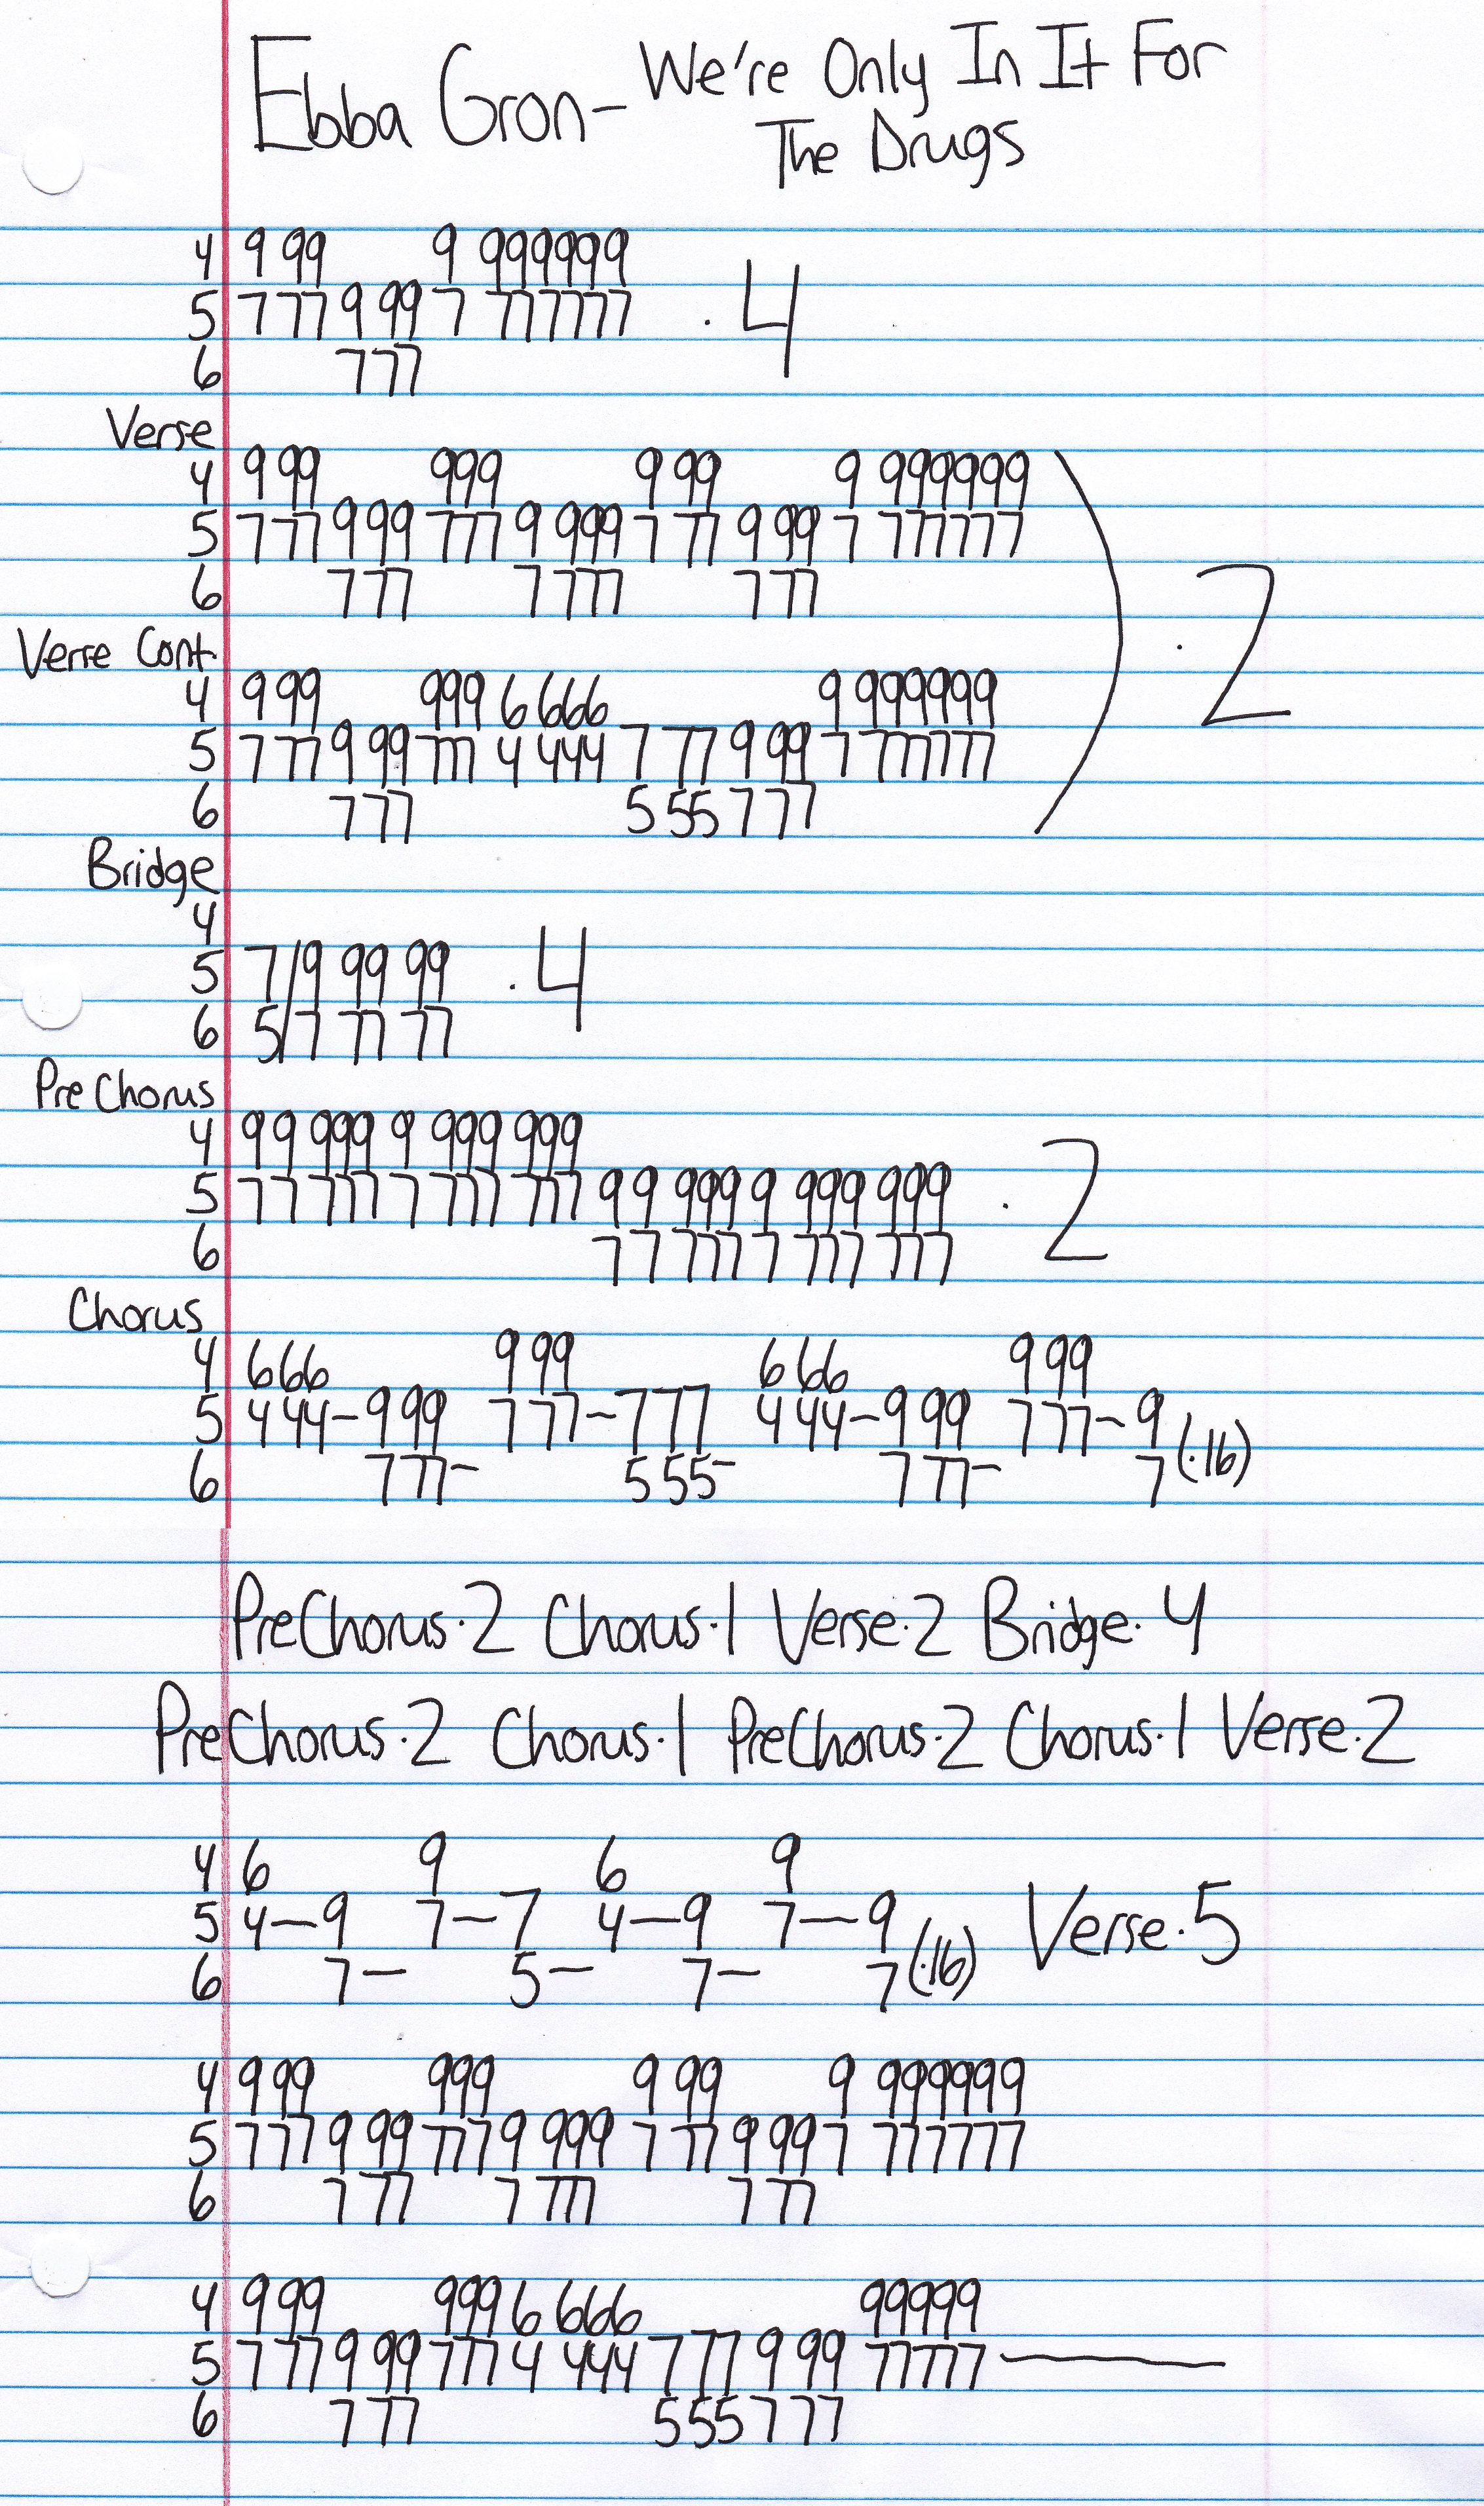 Ebba Gron- We're Only In It For
The Drugs
4 9 99 9 999999
5 7 777 9 99 7 777777 · 4
6 777
Verse
4 9 99 999 9 99 9 999999
5 7 77 9 99 777 9 999 7 77 9 99 7 777777
6 7 77 7 777 7 77
· 2
Verse Cont.
4 9 99 999 6 666 9 999999
5 7 77 9 99 777 4 444 7 77 9 99 7 777777
6 7 77 5 55 7 77
Bridge
4
5 7/9 99 99 · 4
6 5/7 77 77
Pre Chorus
4 99 999 9 999 999
5 77 777 7 777 777 99 999 9 999 999 · 2
6 77 777 7 777 777
Chorus
4 6 66 9 99 6 66 9 99
5 4 44-9 99 7 77-7 77 4 44-9 99 7 77-9 (·16)
6 7 77- 5 55- 7 77- 7
PreChorus·2 Chorus·1 Verse·2 Bridge·4
PreChorus·2 Chorus·1 PreChorus·2 Chorus·1 Verse·2
4 6 9 6 9
5 4-9 7-7 4-9 7-9 (·16) Verse·5
6 7- 5- 7- 7
4 9 99 999 9 99 9 999999
5 7 77 9 99 777 9 999 7 77 9 99 7 777777
6 7 77 7 777 7 77
4 9 99 999 6 666 99999
5 7 77 9 99 777 4 444 7 77 9 99 77777-
6 7 77 5 55 7 77